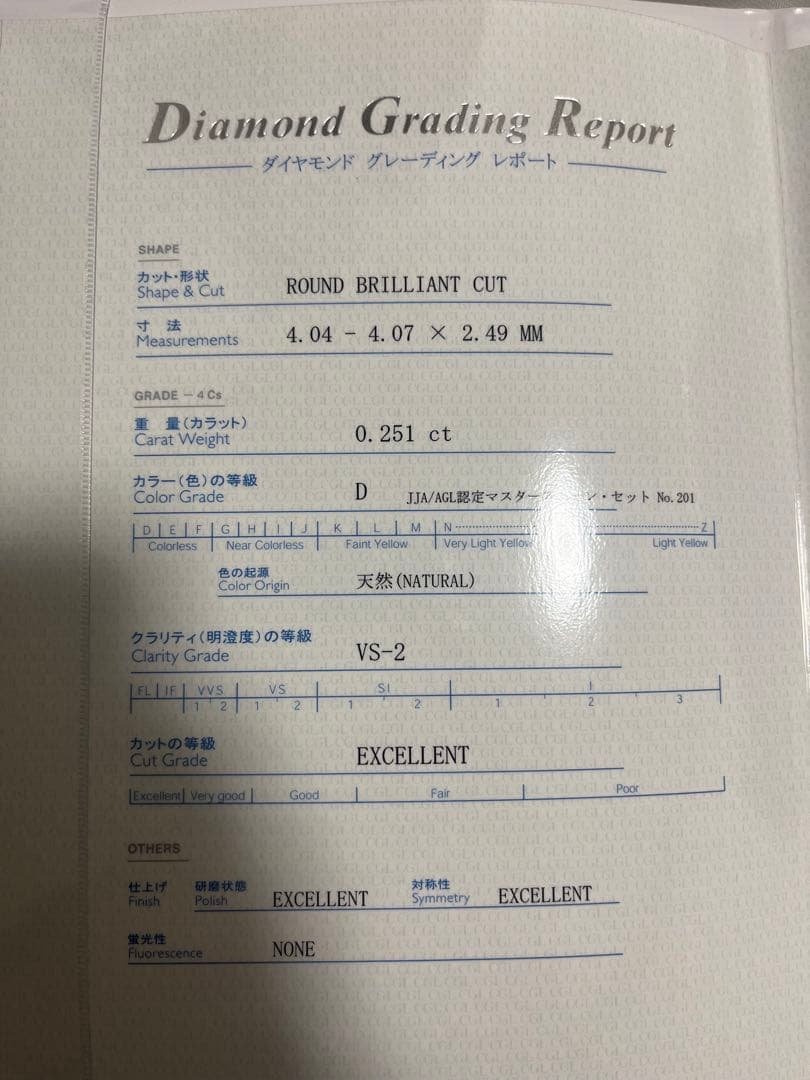 Diamond Grading Report
ダイヤモンド グレーディング レポート
SHAPE
カット・形状
Shape & Cut
ROUND BRILLIANT CUT
寸 法
Measurements
4.04 - 4.07 × 2.49 MM
GRADE - 4Cs
重 量(カラット)
Carat Weight
0.251 ct
カラー(色)の等級
Color Grade
D JJA/AGL認定マスター ン・セット No.201
D E F G H I J K L M N Z
Colorless Near Colorless Faint Yellow Very Light Yellow Light Yellow
色の起源
Color Origin
天然(NATURAL)
クラリティ(明澄度)の等級
Clarity Grade
VS-2
FL IF VVS VS SI I
1 2 1 2 1 2 1 2 3
カットの等級
Cut Grade
EXCELLENT
Excellent Very good Good Fair Poor
OTHERS
仕上げ 研磨状態 対称性
Finish Polish EXCELLENT Symmetry EXCELLENT
蛍光性
Fluorescence
NONE